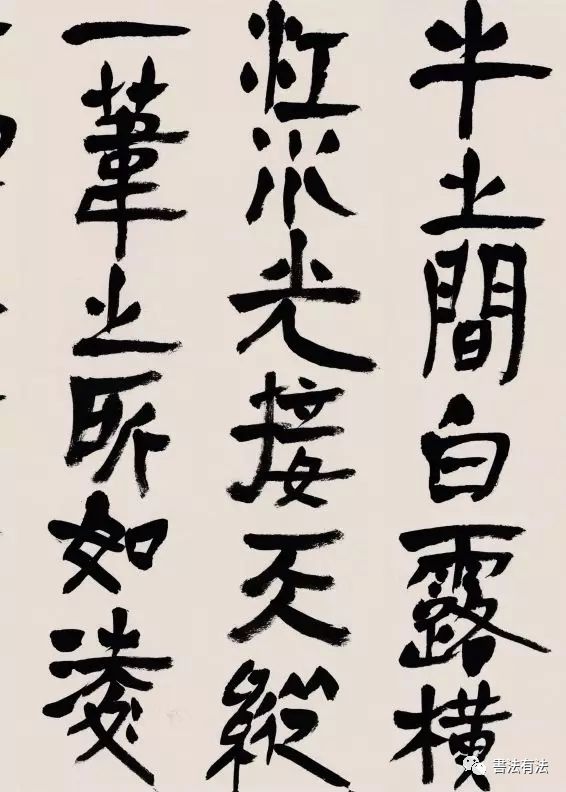 牛之間白露橫
江水光接天縱
一葦之所如淩
書法有法